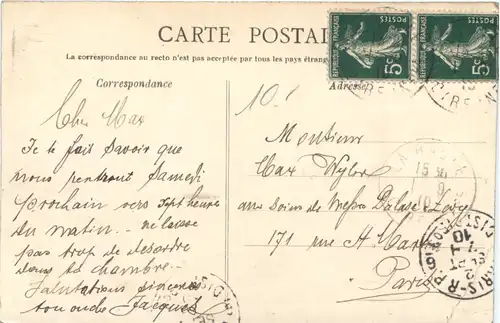 CARTE POSTALE
La correspondance au recto n'est pas acceptée par tous les pays étrang
Correspondance
Adresse
RÉPUBLIQUE FRANÇAISE
POSTES
5c
RÉPUBLIQUE FRANÇAISE
POSTES
5c
10.
Cher Max
Je te fait savoir que
nous rentront Samedi
prochain vers sept heures
du matin. ne laisse
pas trop de désordre
dans ta chambre.
Salutations sincères
ton oncle Jacques
Monsieur
Max Wyler
aux Soins de
171 rue St
Paris